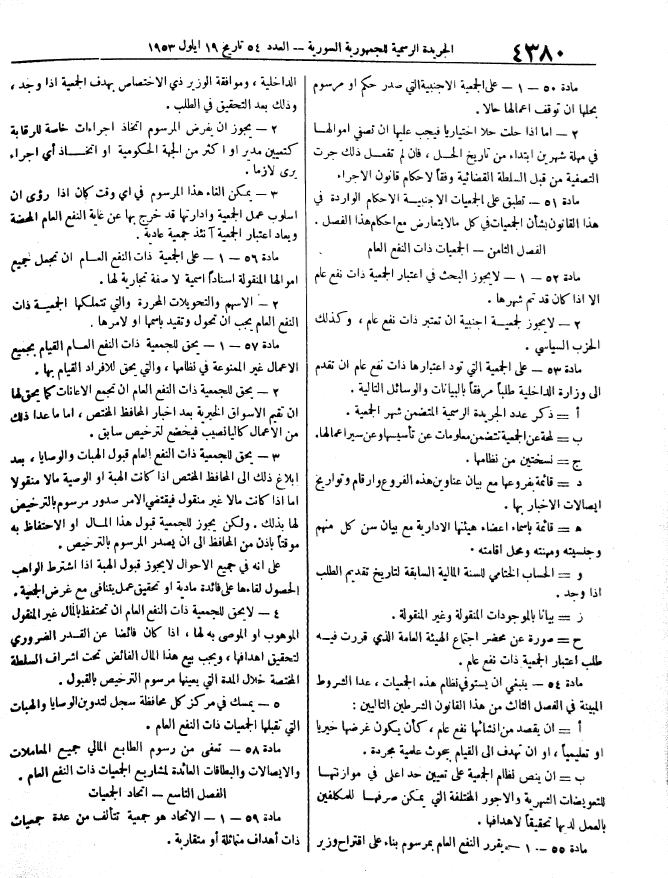 ٤٣٨٠
الجريدة الرسمية للجمهورية السورية — العدد ٥٤ تاريخ ١٩ ايلول ١٩٥٣
مادة ٥٠ — ١ — على الجمعية الاجنبية التي صدر حكم او مرسوم
بحلها ان توقف اعمالها حالا .
٢ — اما اذا حلت حلا اختياريا فيجب عليها ان تصفي اموالها
في مهلة شهرين ابتداء من تاريخ الحل ، فان لم تفعل ذلك جرت
التصفية من قبل السلطة القضائية وفقاً لاحكام قانون الاجراء
مادة ٥١ — تطبق على الجمعيات الاجنبية الاحكام الواردة في
هذا القانون بشأن الجمعيات في كل مالا يتعارض مع احكام هذا الفصل .
الفصل الثامن — الجمعيات ذات النفع العام
مادة ٥٢ — ١ — لايجوز البحث في اعتبار الجمعية ذات نفع عام
الا اذا كان قد تم شهرها .
٢ — لايجوز لجمعية اجنبية ان تعتبر ذات نفع عام ، وكذلك
الحزب السياسي .
مادة ٥٣ — على الجمعية التي تود اعتبارها ذات نفع عام ان تقدم
الى وزارة الداخلية طلباً مرفقاً بالبيانات والوسائل التالية .
أ — ذكر عدد الجريدة الرسمية المتضمن شهر الجمعية .
ب — لمحة عن الجمعية تتضمن معلومات عن تأسيسها وعن سير اعمالها.
ج — نسختين من نظامها .
د — قائمة بفروعها مع بيان عناوين هذه الفروع وارقام وتواريخ
ايصالات الاخبار بها .
ه — قائمة باسماء اعضاء هيئتها الادارية مع بيان سن كل منهم
وجنسيته ومهنته ومحل اقامته .
و — الحساب الختامي للسنة المالية السابقة لتاريخ تقديم الطلب
اذا وجد .
ز — بيانا بالموجودات المنقولة وغير المنقولة .
ح — صورة عن محضر اجتماع الهيئة العامة الذي قررت فيه
طلب اعتبار الجمعية ذات نفع عام .
مادة ٥٤ — ينبغي ان يستوفي نظام هذه الجمعيات ، عدا الشروط
المبينة في الفصل الثالث من هذا القانون الشرطين التاليين :
أ — ان يقصد من انشائها نفع عام ، كأن يكون غرضها خيريا
او تعليمياً ، او ان تهدف الى القيام ببحوث علمية مجردة .
ب — ان ينص نظام الجمعية على تعيين حد اعلى في موازنتها
للتعويضات الشهرية والاجور المختلفة التي يمكن صرفها للمكلفين
بالعمل لديها تحقيقاً لاهدافها .
مادة ٥٥ — ١ — يقرر النفع العام بمرسوم بناء على اقتراح وزير
الداخلية ، وموافقة الوزير ذي الاختصاص بهدف الجمعية اذا وجد ،
وذلك بعد التحقيق في الطلب .
٢ — يجوز ان يفرض المرسوم اتخاذ اجراءات خاصة للرقابة
كتعيين مدير او اكثر من الجهة الحكومية او اتخاذ أي اجراء
يرى لازما .
٣ — يمكن الغاء هذا المرسوم في اي وقت كان اذا رؤى ان
اسلوب عمل الجمعية وادارتها قد خرج بها عن غاية النفع العام المحضة
ويعاد اعتبار الجمعية آنئذ جمعية عادية .
مادة ٥٦ — ١ — على الجمعية ذات النفع العام ان تجعل جميع
اموالها المنقولة اسناداً اسمية لا صفة تجارية لها .
٢ — الاسهم والتحويلات المحررة والتي تتملكها الجمعية ذات
النفع العام يجب ان تحول وتقيد باسمها او لامرها .
مادة ٥٧ — ١ — يحق للجمعية ذات النفع العام القيام بجميع
الاعمال غير الممنوعة في نظامها ، والتي يحق للافراد القيام بها .
٢ — يحق للجمعية ذات النفع العام ان تجمع الاعانات كما يحق لها
ان تقيم الاسواق الخيرية بعد اخبار المحافظ المختص ، اما ماعدا ذلك
من الأعمال كاليانصيب فيخضع لترخيص سابق .
٣ — يحق للجمعية ذات النفع العام قبول الهبات والوصايا ، بعد
ابلاغ ذلك الى المحافظ المختص اذا كانت الهبة او الوصية مالا منقولا
اما اذا كانت مالا غير منقول فيقتضي الامر صدور مرسوم بالترخيص
لها بذلك . ولكن يجوز للجمعية قبول هذا المال او الاحتفاظ به
موقتاً باذن من المحافظ الى ان يصدر المرسوم بالترخيص .
على انه في جميع الاحوال لايجوز قبول الهبة اذا اشترط الواهب
الحصول لقاءها على فائدة مادية او تحقيق عمل يتنافى مع غرض الجمعية.
٤ — لايحق للجمعية ذات النفع العام ان تحتفظ بالمال غير المنقول
الموهوب او الموصى به لها ، اذا كان فائضا عن القدر الضروري
لتحقيق اهدافها ، ويجب بيع هذا المال الفائض تحت اشراف السلطة
المختصة خلال المدة التي يعينها مرسوم الترخيص بالقبول .
٥ — يمسك في مركز كل محافظة سجل لتدوين الوصايا والهبات
التي تقبلها الجمعيات ذات النفع العام .
مادة ٥٨ — تعفى من رسوم الطابع المالي جميع المعاملات
والايصالات والبطاقات العائدة لمشاريع الجمعيات ذات النفع العام .
الفصل التاسع — اتحاد الجمعيات
مادة ٥٩ — ١ — الاتحاد هو جمعية تتألف من عدة جمعيات
ذات أهداف متماثلة أو متقاربة .